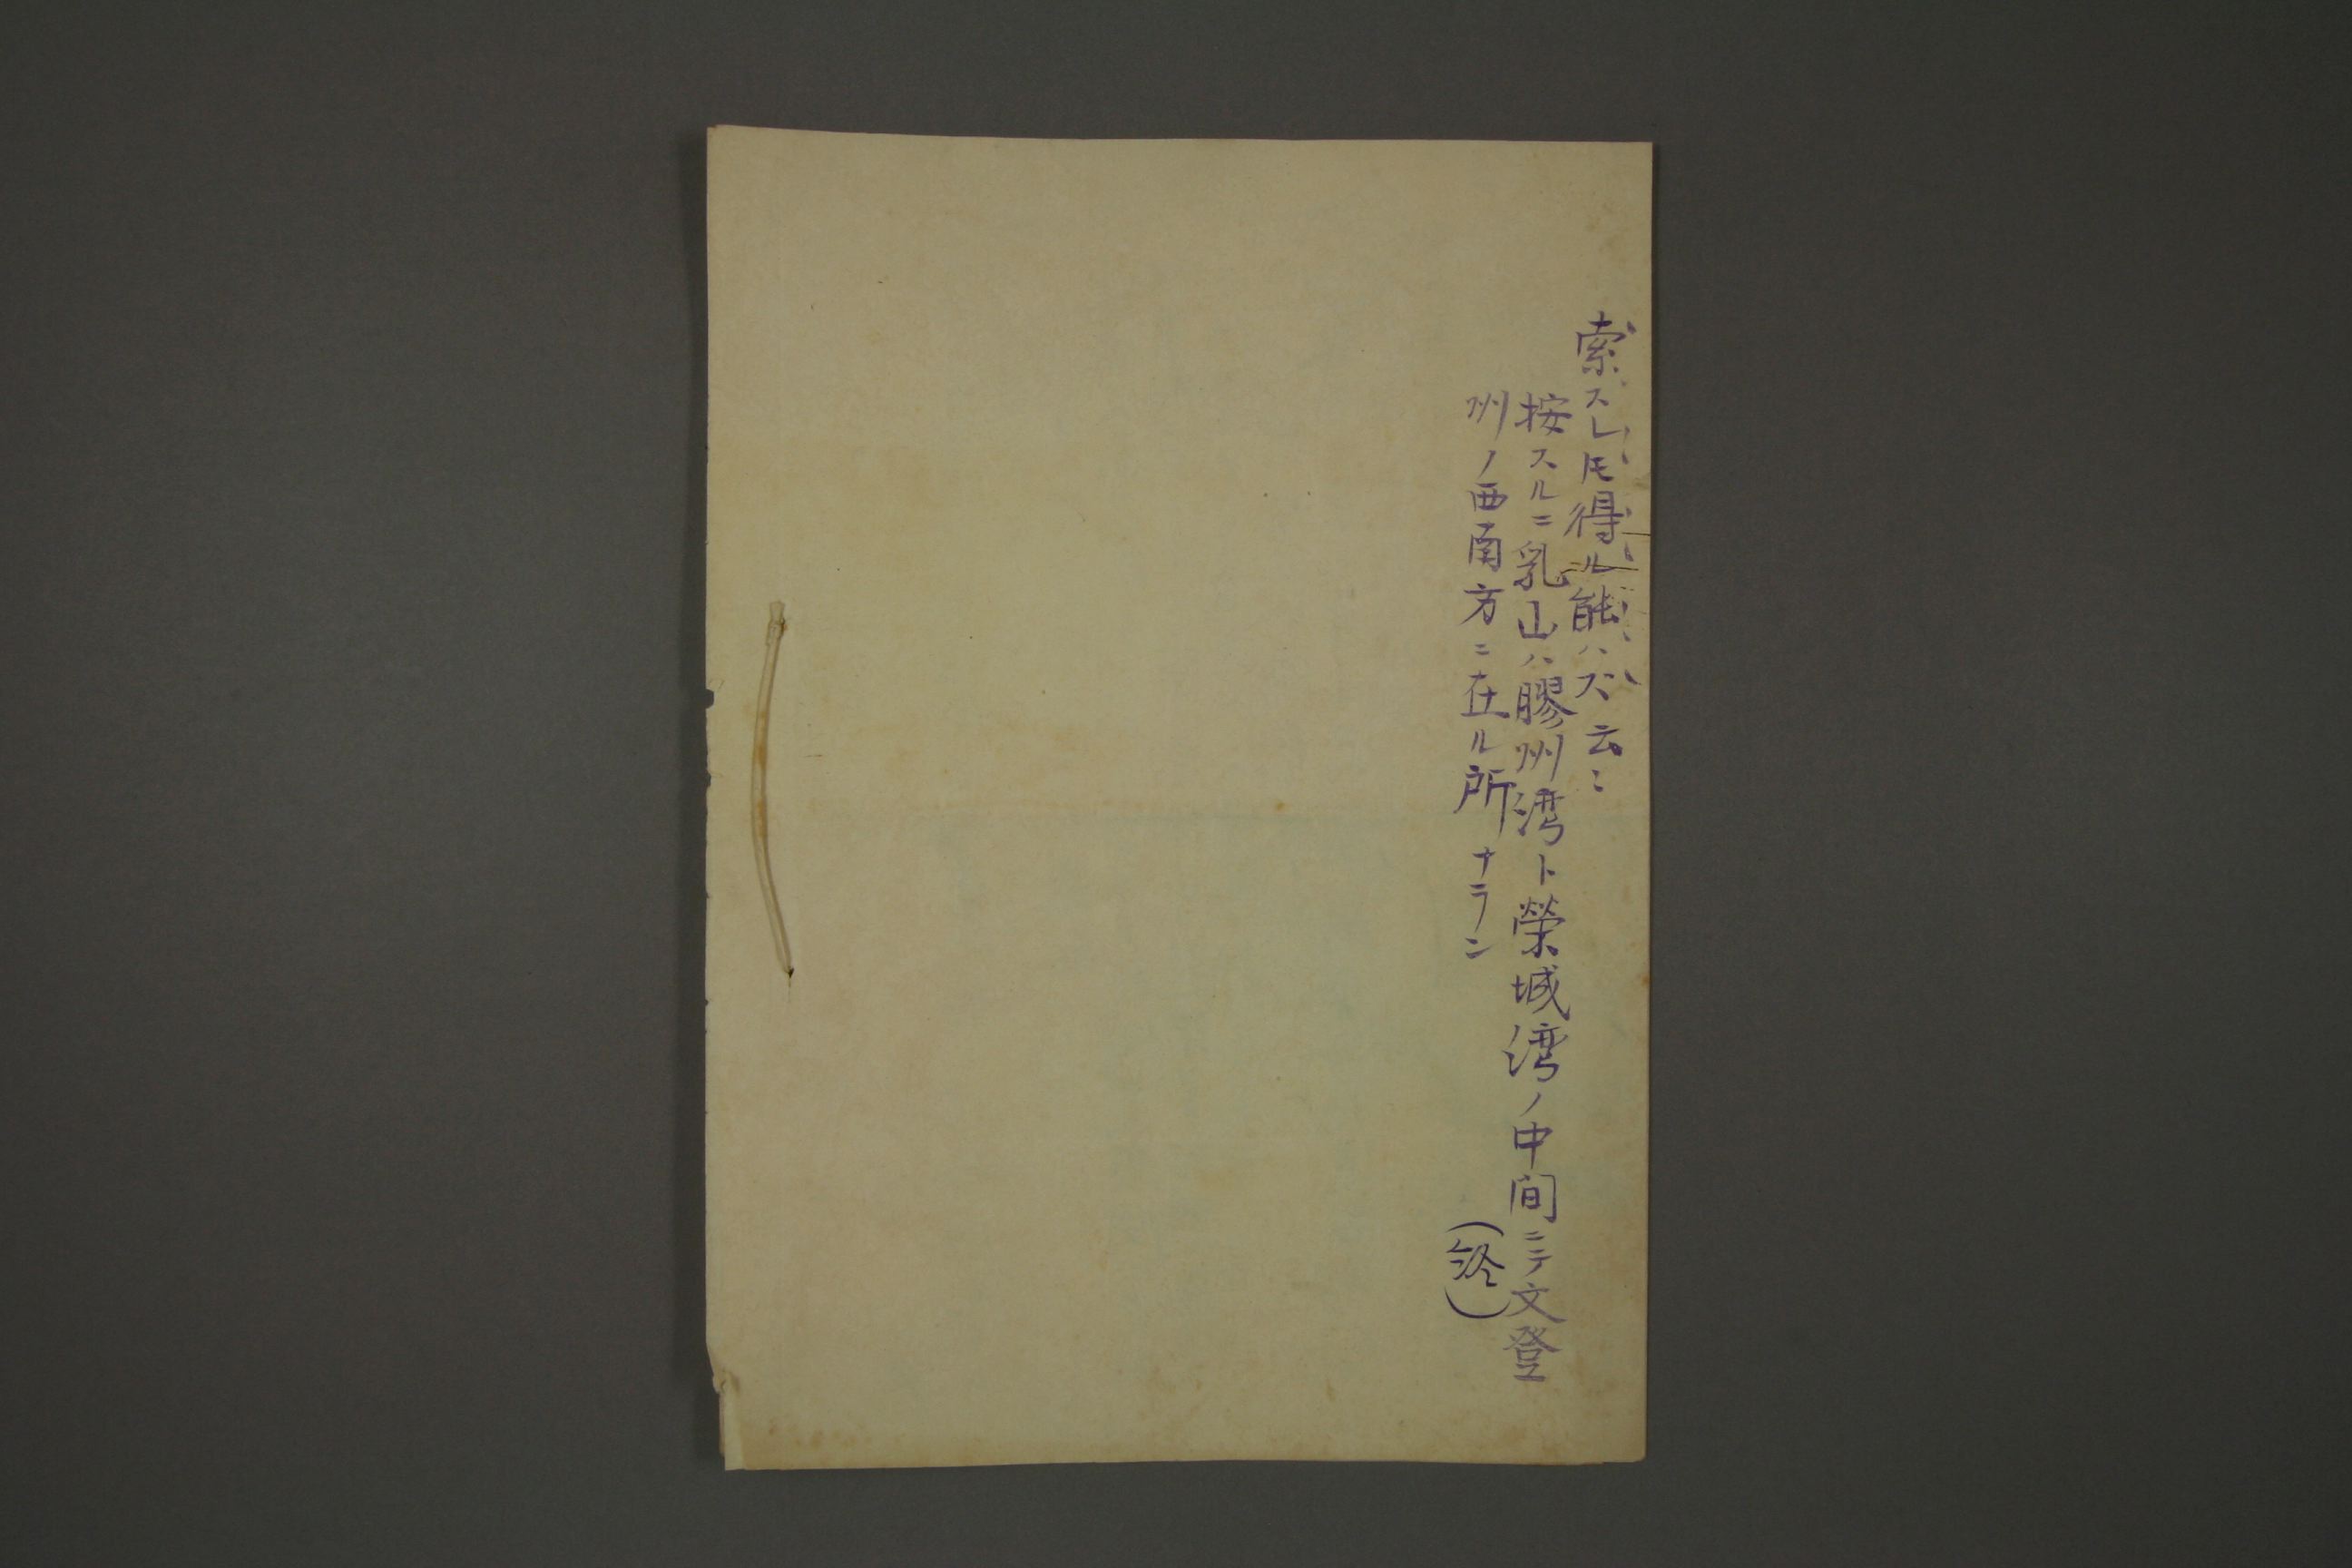 索スレ𪜈得ル能ハズ云〻
按スルニ乳山ハ膠州湾ト榮城湾ノ中间ニテ文登
州ノ西南方ニ在ル所ナラン
(終)